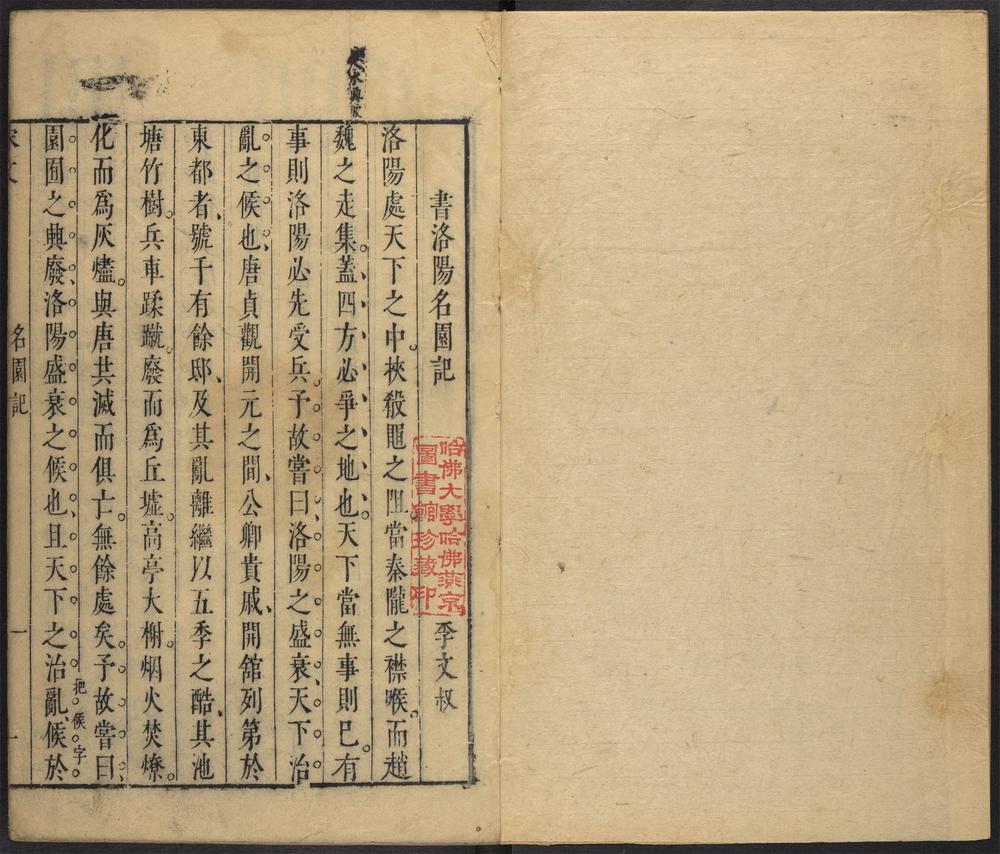 書洛陽名園記
季文叔
洛陽處天下之中。挾殽黽之阻。當秦隴之襟喉。而趙
魏之走集。蓋四方必爭之地也。天下當無事則已。有
事則洛陽必先受兵。予故嘗曰洛陽之盛衰、天下治
亂之候也、唐貞觀開元之間、公卿貴戚、開舘列第於
東都者、號千有餘邸、及其亂離繼以五季之酷、其池
塘竹樹。兵車蹂蹴。廢而爲丘墟。高亭大榭。烟火焚燎。
化而爲灰燼。與唐共滅而俱亡。無餘處矣。予故嘗曰、
園囿之興廢、洛陽盛衰之候也、且天下之治亂、候於
把候字
名園記
一
哈佛大學哈佛燕京
圖書館珍藏印